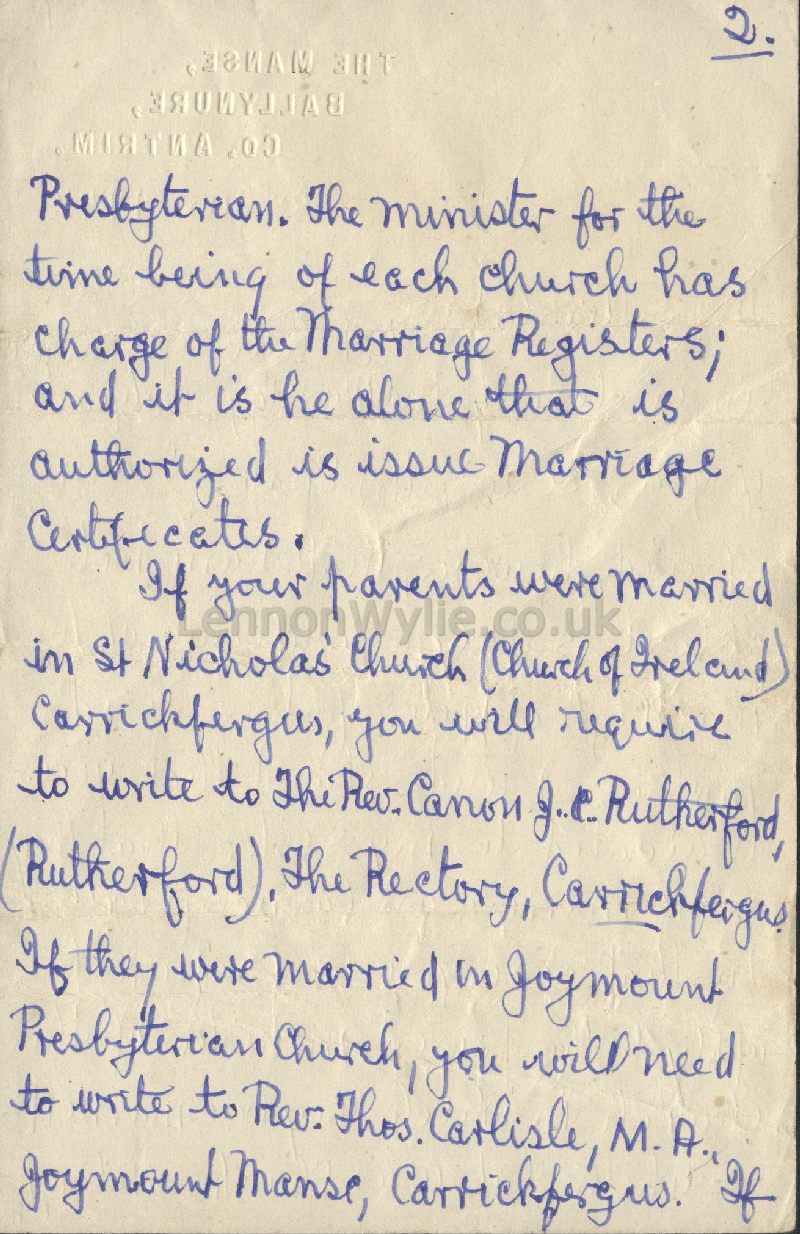 2.
THE MANSE,
BALLYNURE,
CO. ANTRIM.
Presbyterian. The minister for the
time being of each church has
charge of the Marriage Registers;
and it is he alone that is
authorized is issue Marriage
Certificates.
If your parents were married
LennonWylie.co.uk
in St Nicholas' Church (Church of Ireland)
Carrickfergus, you will require
to write to The Rev. Canon J. C. Rutherford,
(Rutherford), The Rectory, Carrickfergus.
If they were married in Joymount
Presbyterian Church, you will need
to write to Rev. Thos. Carlisle, M.A.,
Joymount Manse, Carrickfergus. If